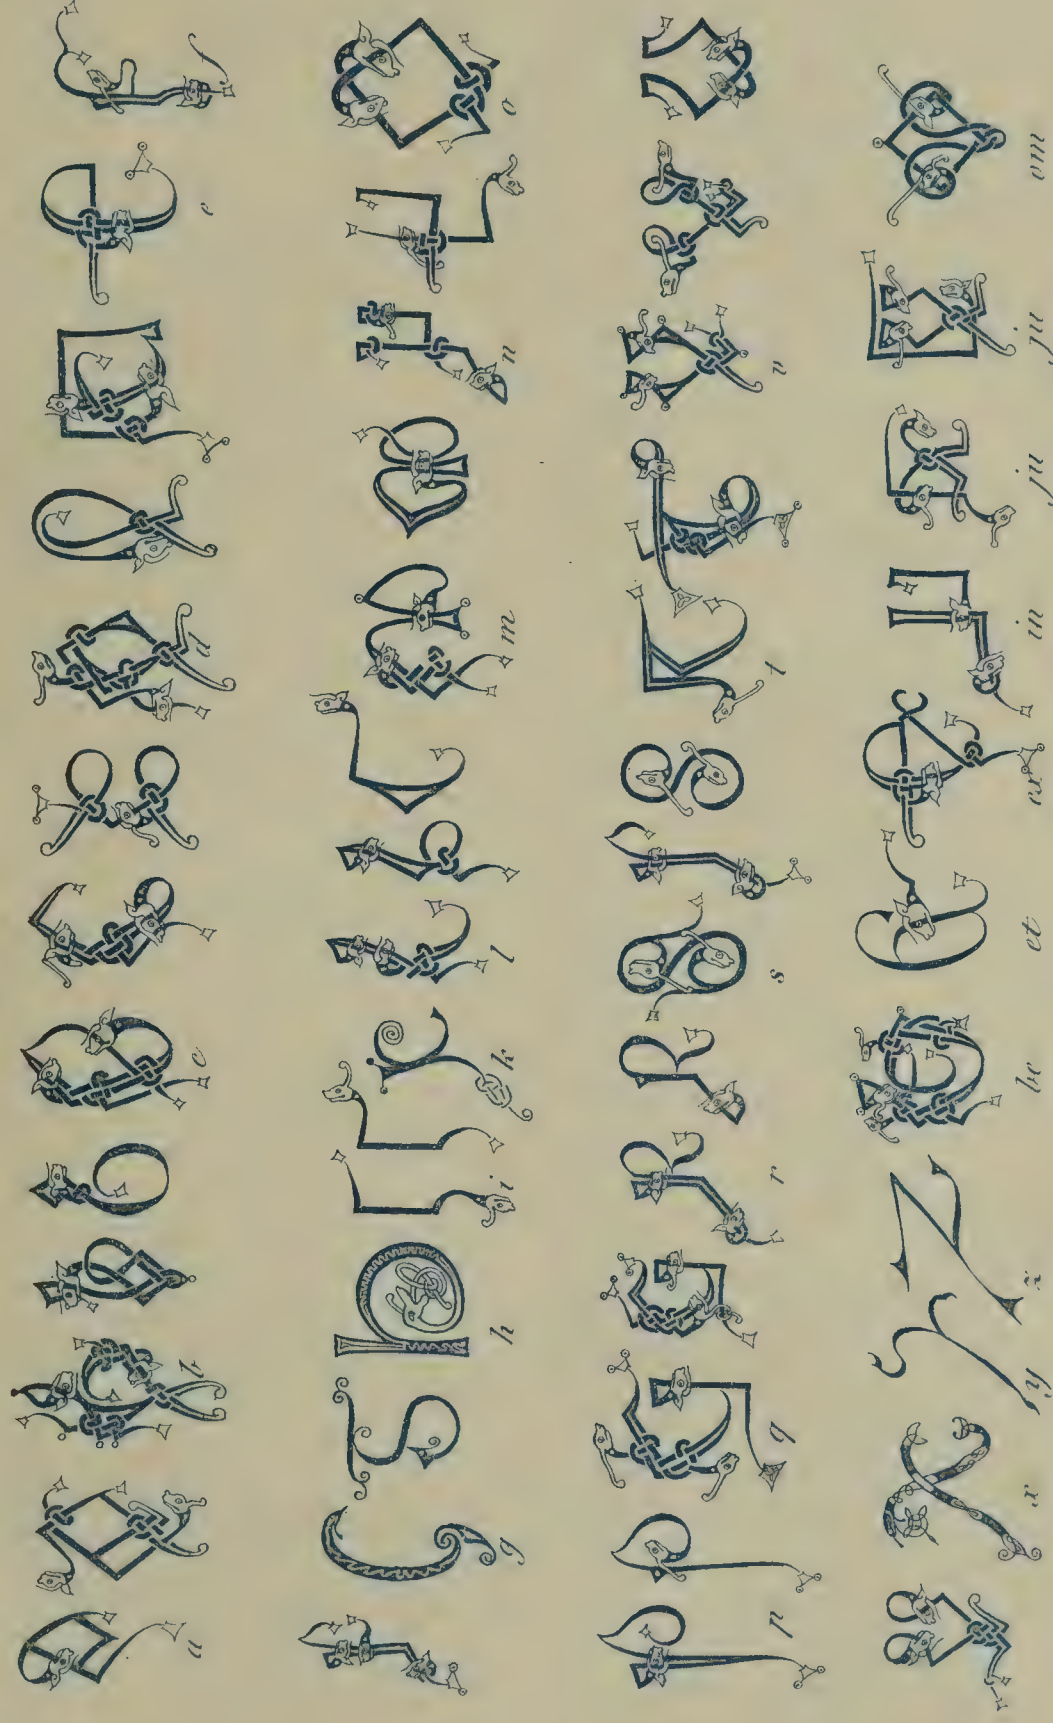 a b c d e
g h i k l m n o
p q r s t v
x y z be et ex in ju ju